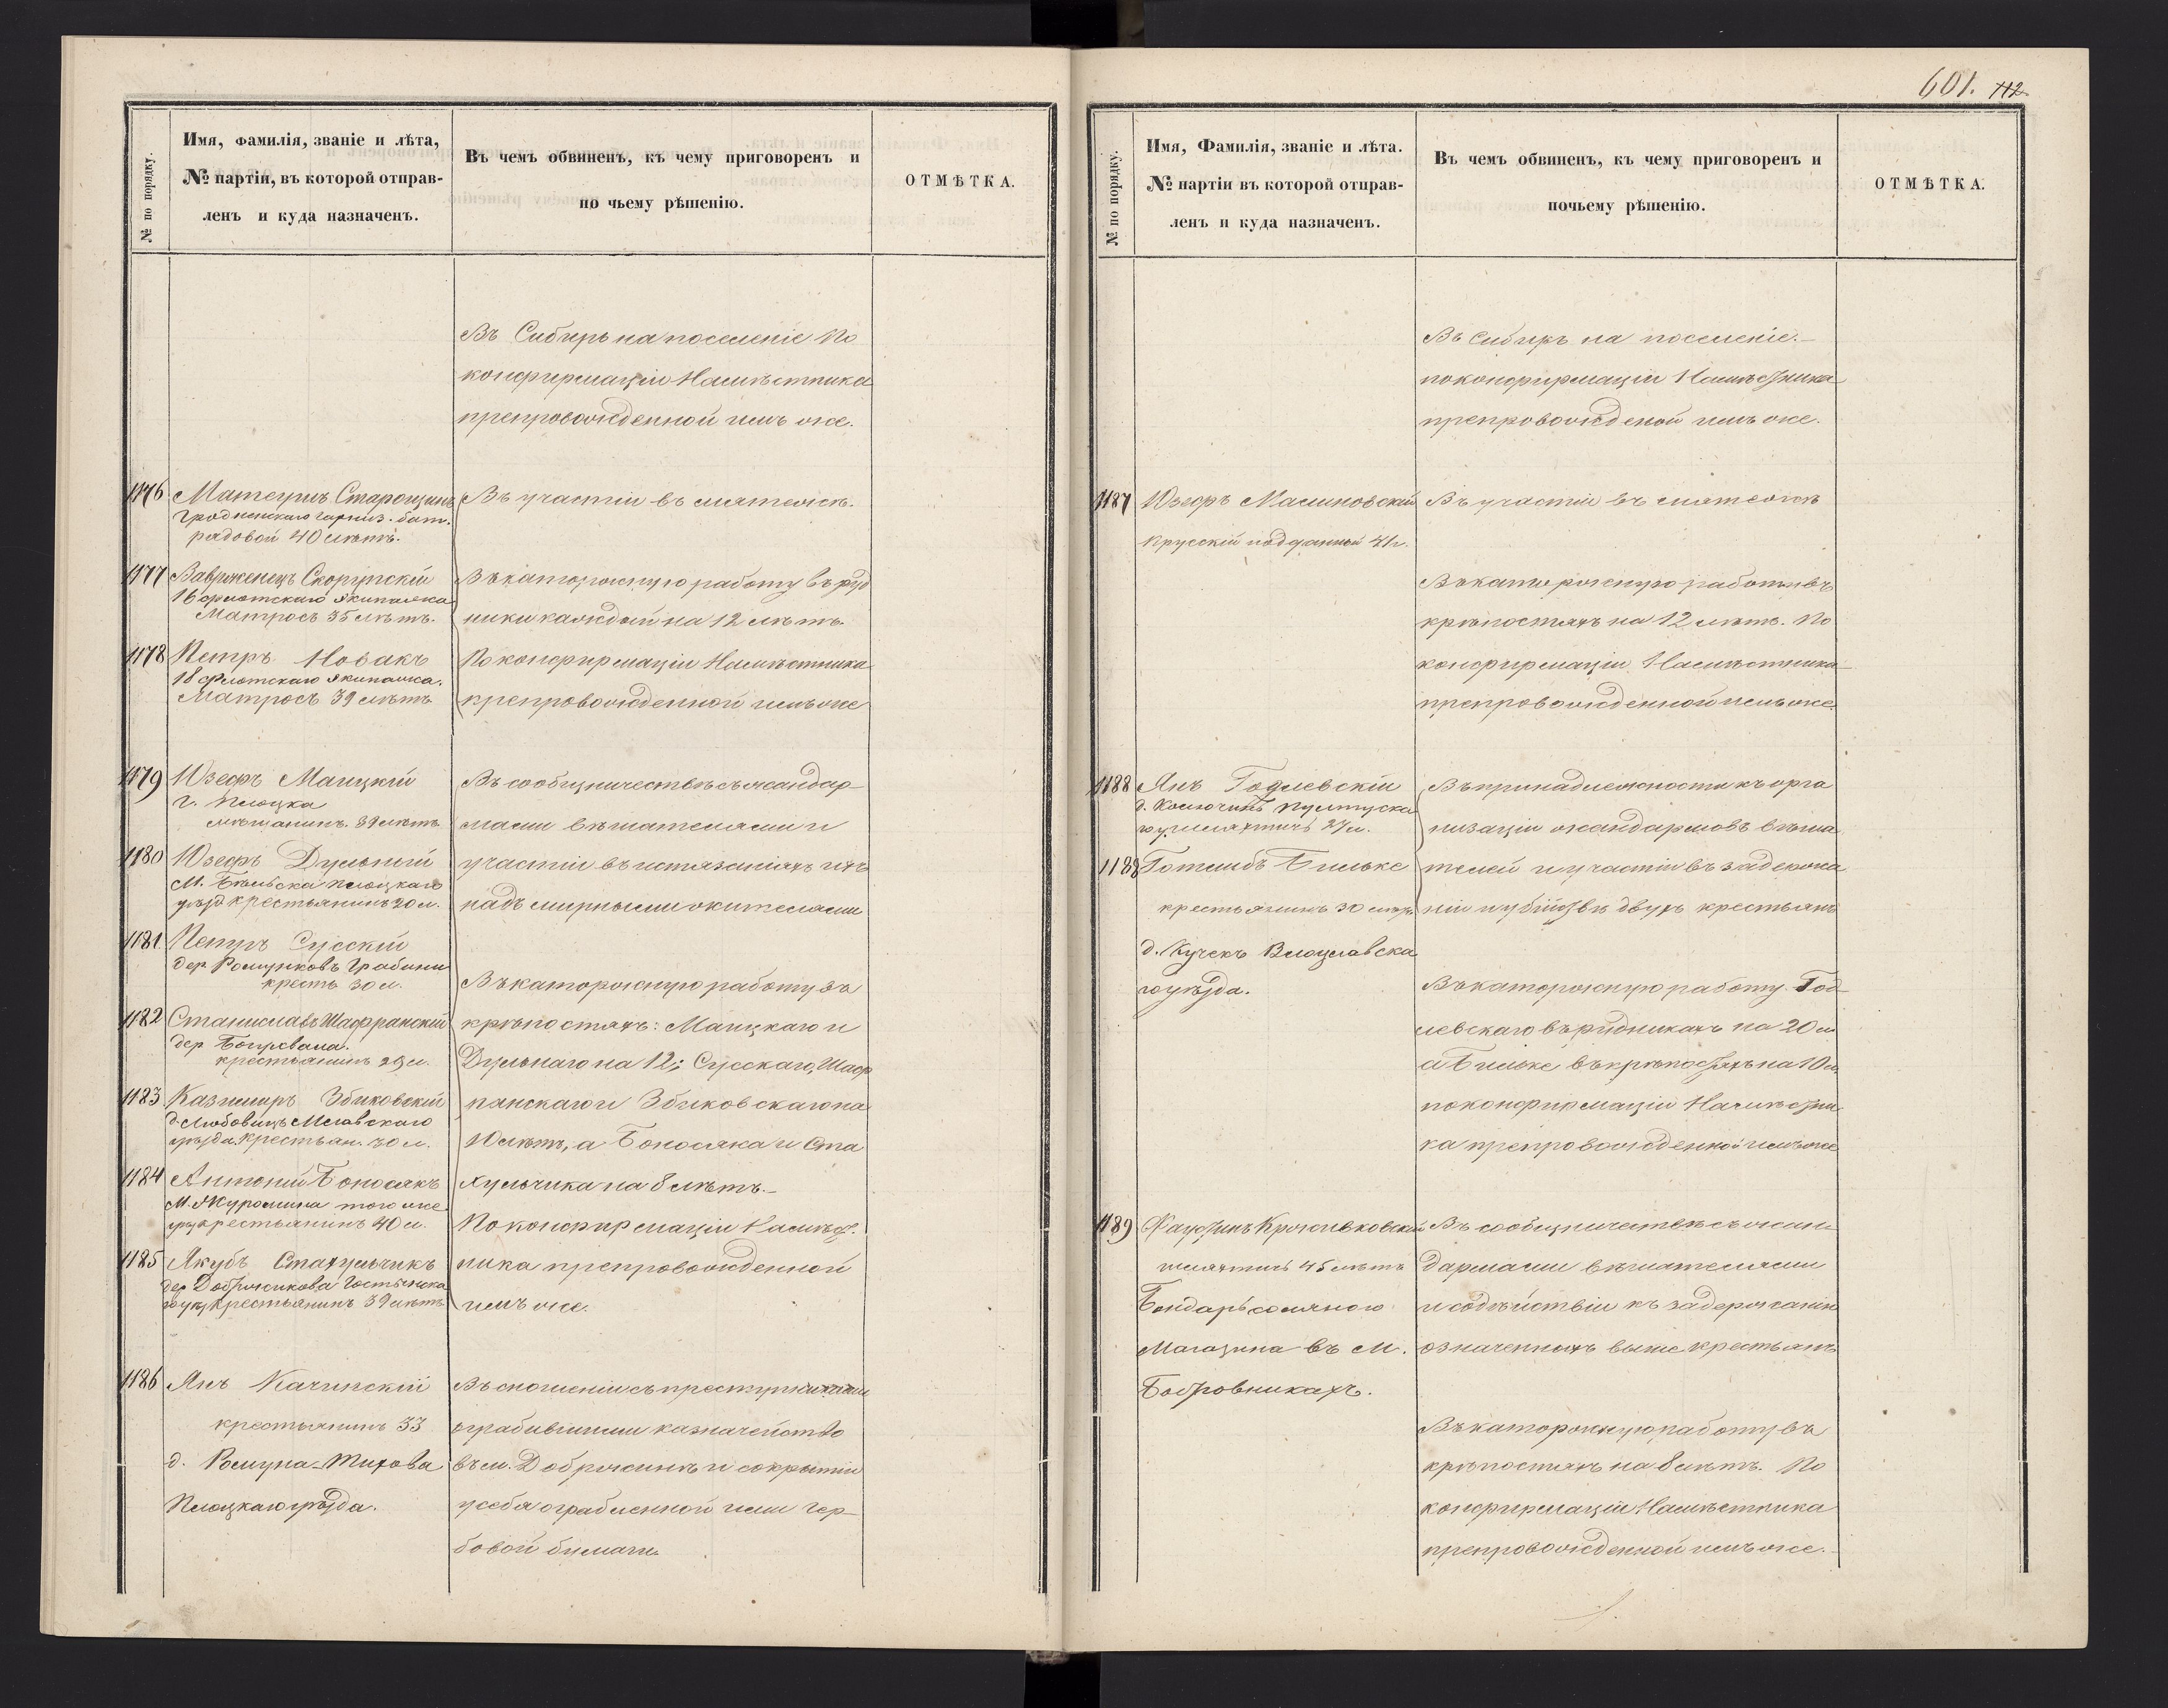 601. 112.
№ по порядку.
Имя, фамилія, званіе и лѣта,
№ партіи, въ которой отправ-
ленъ и куда назначенъ.
Въ чемъ обвиненъ, къ чему приговоренъ и
по чьему рѣшенію.
ОТМѢТКА.
Въ Сибирь на поселеніе По
конфирмаціи Намѣстника
препровожденной имъ же.
1176
Матеушъ
Гродненскаго гарниз. бат.
рядовой 40 лѣтъ.
Въ участіи въ мятежѣ.
1177
Ваврженецъ Скорупскій
16 флотскаго экипажа
Матросъ 35 лѣтъ.
Въ каторжную работу въ руд
ники каждый на 12 лѣтъ.
1178
Петръ Новакъ
18 флотскаго экипажа.
Матросъ 39 лѣтъ
По конфирмаціи Намѣстника
препровожденной имъ же
1179
Юзефъ Маицкій
г. Плоцка
мѣщанинъ. 39 лѣтъ
Въ сообщничествѣ съ жандар-
мами вѣшателями и
1180
Юзефъ Дульный
М. Бѣльска Плоцкаго
уѣзд крестьянинъ 20 л.
участіи въ истязаніяхъ ихъ
надъ мирными жителями
1181
Петръ Сусскій
дер.
крестъ 30 л.
Въ каторжную работу въ
1182
Станиславъ Шафранскій
дер.
крестьянинъ 29 л.
крѣпостяхъ: Маицкаго и
Дульнаго на 12; Сусскаго, Шаф
1183
Казимиръ Збиковскій
Млавскаго
уѣзда. крестьян. 30 л.
ранскаго и Збиковскаго на
10 лѣтъ, а Боносяка и Ста
1184
Антоній Боносякъ
М. Журомина того же
уѣз крестьянинъ 40 л.
хульчика на 8 лѣтъ.-
По конфирмаціи Намѣст.
1185
Якубъ Стахульчикъ
дер. Гостынска
го уѣз крестьянинъ 39 лѣтъ
ника препровожденной
имъ же.
1186
Янъ Качинскій
крестьянинъ 33
д. Ромуна-Тихова
Плоцкаго уѣзда.
Въ сношеніи съ преступниками
ограбившими казначейство
въ м. Добржинѣ и сокрытіи
у себя ограбленной ими гер-
бовой бумаги.
№ по порядку.
Имя, Фамилія, званіе и лѣта.
№ партіи въ которой отправ-
ленъ и куда назначенъ.
Въ чемъ обвиненъ, къ чему приговоренъ и
почьему рѣшенію.
ОТМѢТКА.
Въ Сибирь на поселеніе.-
по конфирмаціи Намѣстника
препровожденой имъ же.
1187
Юзефъ Малиновскій
прусскій подданный 41 г.
Въ участіи въ мятежѣ
Въ каторжную работу въ
крѣпостяхъ на 12 лѣтъ. По
конфирмаціи Намѣстника
препровожденной имъ же.
1188
Янъ Годлевскій
Пултуска
го у шляхтичъ 27 л.
Въ принадлежности къ орга
низаціи жандармовъ вѣша
1188
Готлибъ Бильке
крестьянинъ 30 лѣтъ.
д. Кучекъ Влоцлавска
го уѣзда.
телей и участіи въ задержа
ніи и убійствѣ двухъ крестьянъ
Въ каторжную работу Год-
левскаго въ рудникахъ на 20 л
а Бильке въ крѣпостяхъ на 10 л.
по конфирмаціи Намѣстни
ка препровожденной имъ же
1189
шляхтичъ 45 лѣтъ
Бондарь солянаго
Магазина въ М.
Бобровникахъ.
Въ сообщничествѣ съ жан-
дармами вѣшателями
и содѣйствіи къ задержанію
означенныхъ выше крестьянъ
Въ каторжную работу въ
крѣпостяхъ на 8 лѣтъ. По
конфирмаціи Намѣстника
препровожденной имъ же.-